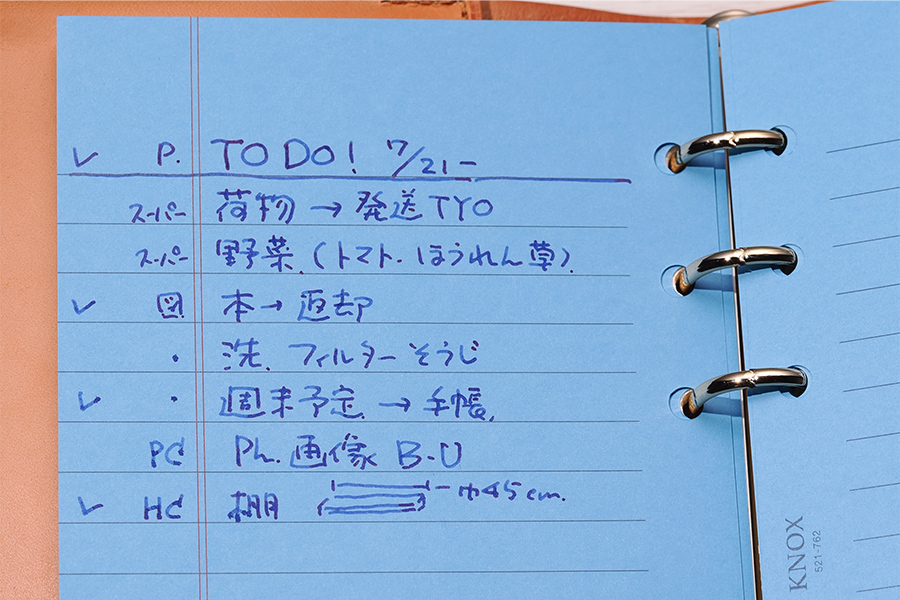 ✓ P. TO DO! 7/21-
スーパー 荷物 → 発送 TYO
スーパー 野菜.(トマト.ほうれん草).
✓ 図 本 → 返却
・ 洗. フィルターそうじ
✓・ ・ 週末予定. → 手帳.
PC Ph. 画像 B-U
✓ HC 棚 巾45cm.
KNOX
521-762